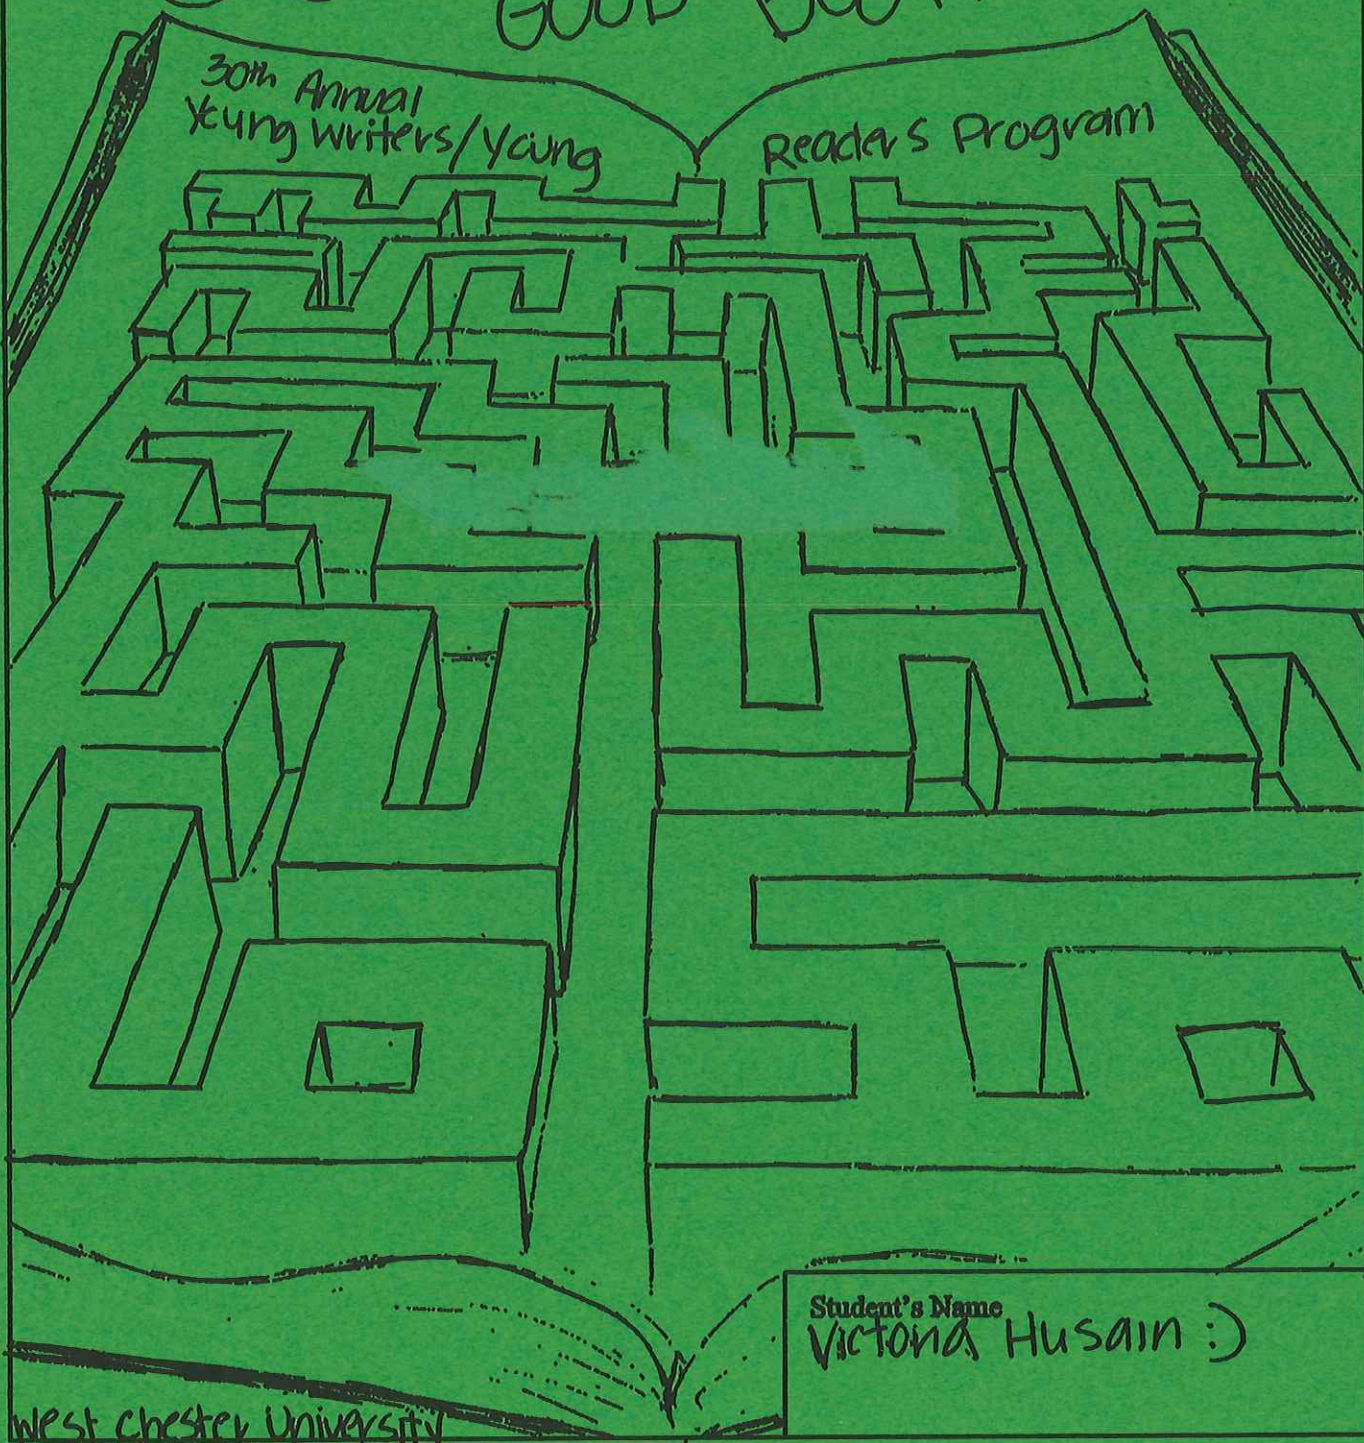 GOOD
30th Annual
Young Writers/Young
Readers Program
Student's Name
Victoria Husain :)
West Chester University